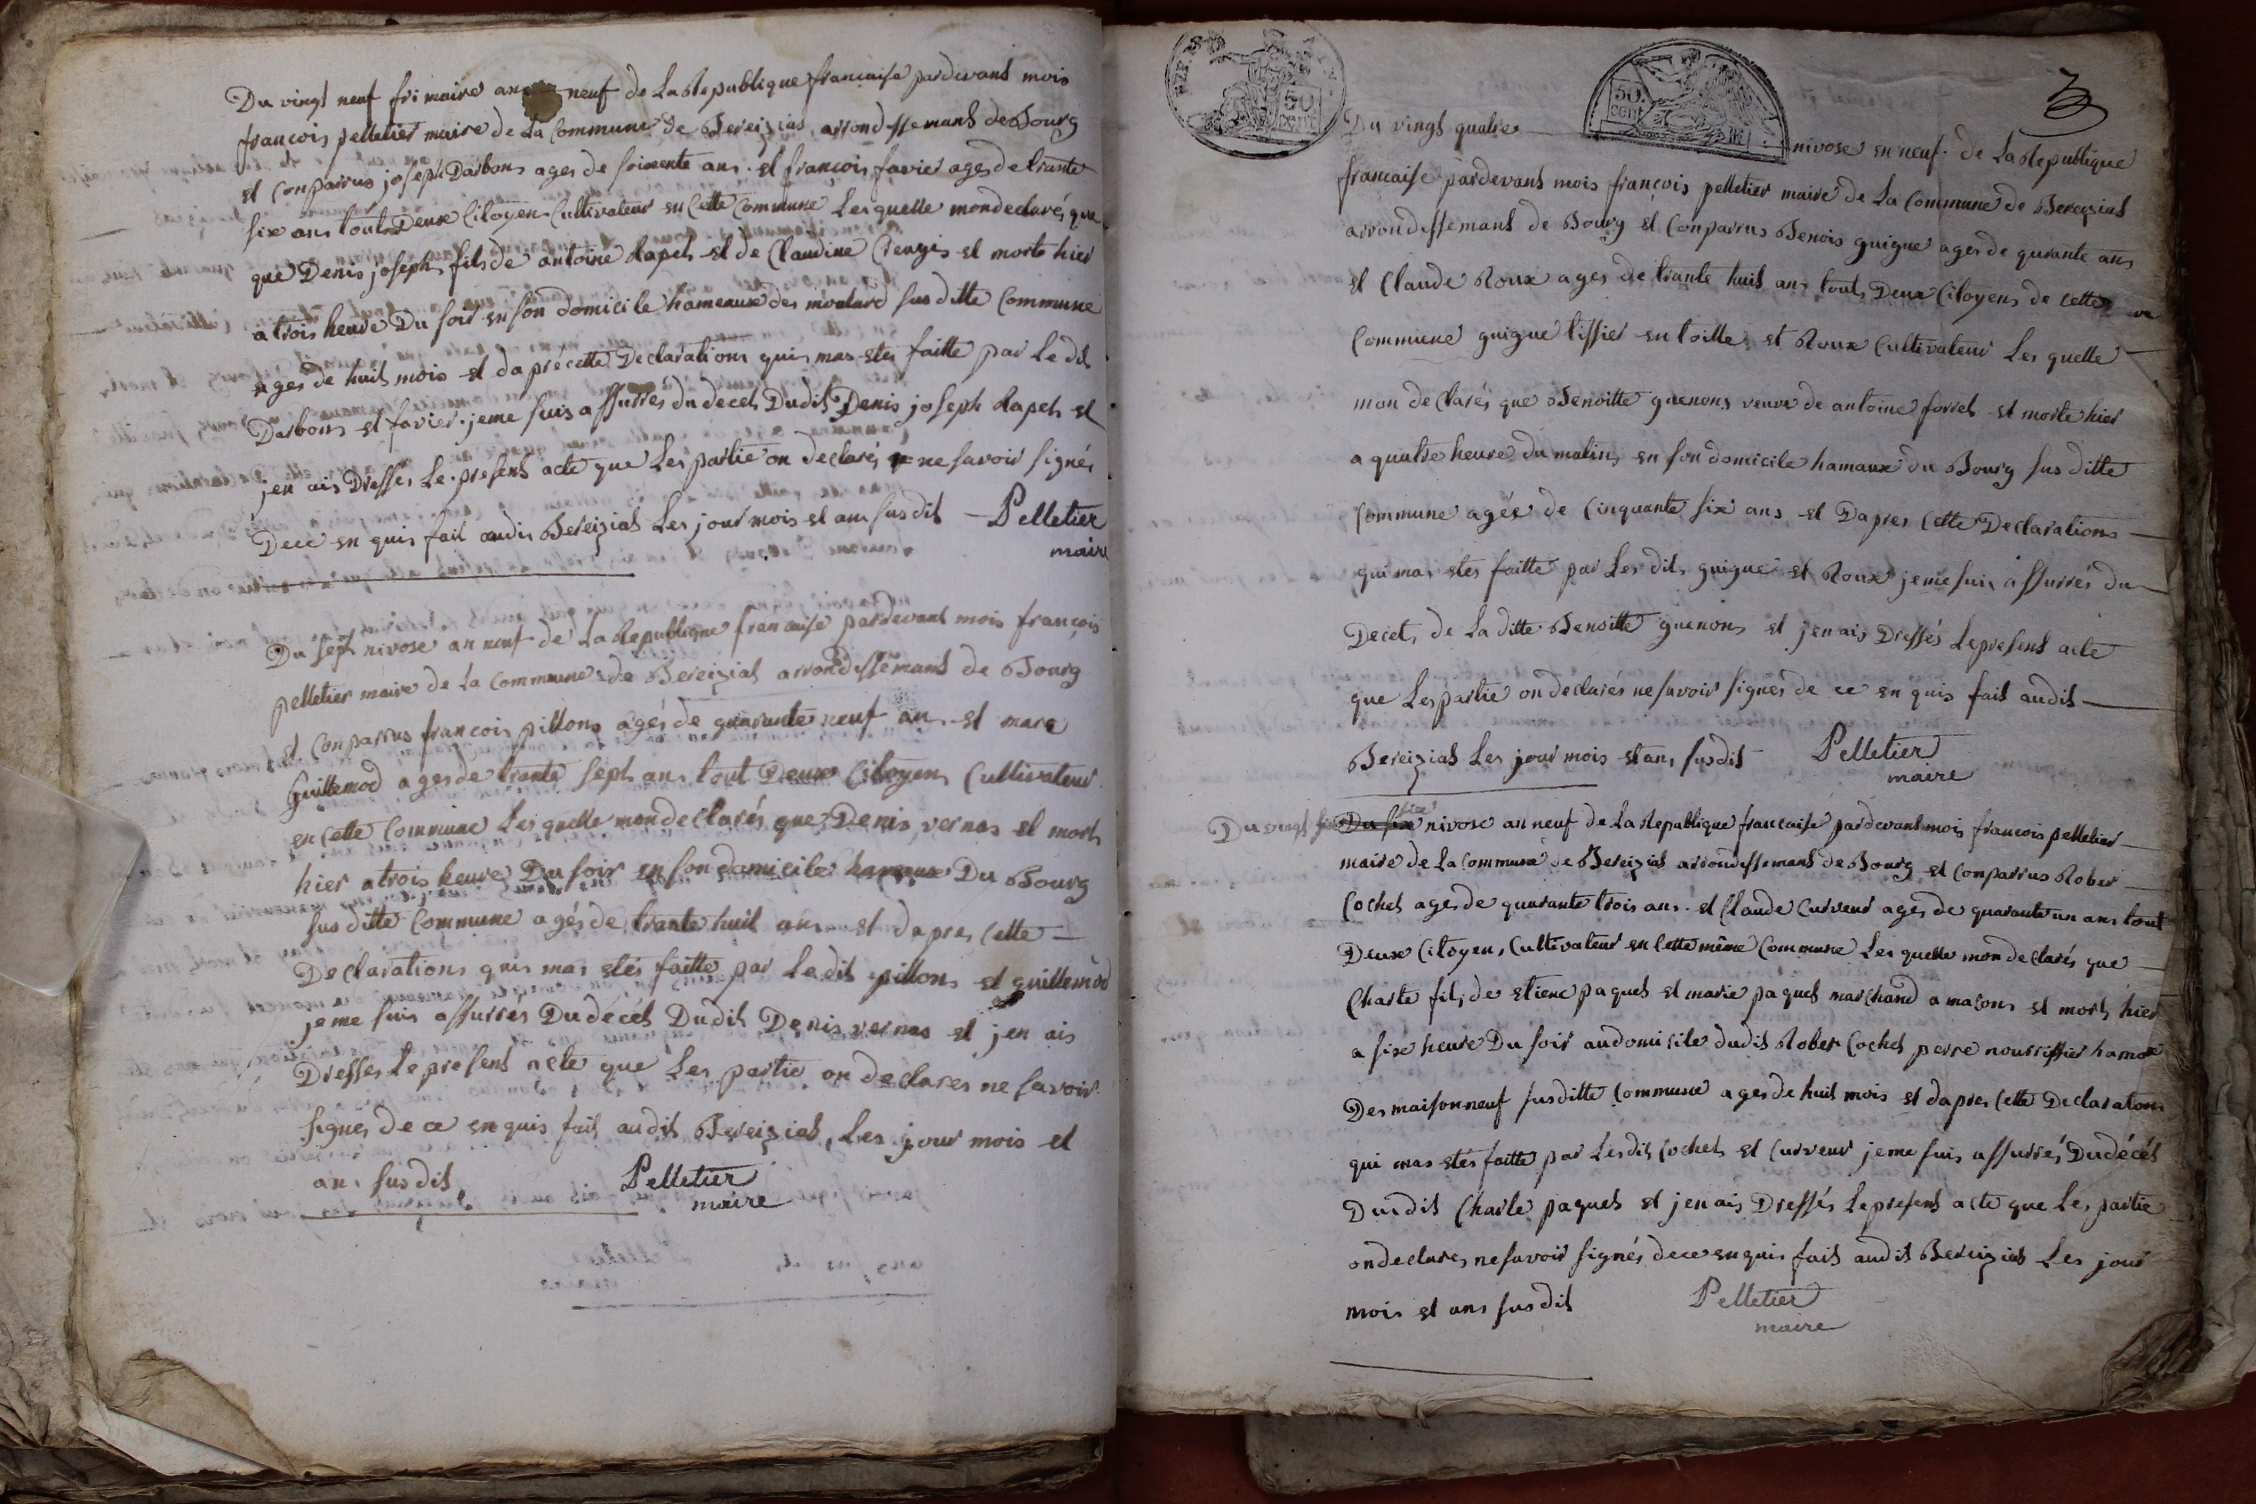 Du vingt neuf frimaire an neuf de La Republique francaise pardevant mois
françois pelletier maire de La Commune de Bereiziat arrondissemant de Bourg
et Conparrus joseph Darbons ages de soixente ans et francois favier ages de trante
six ans tout Deux Citoyens Cultivateur en Cette Commune Les quelle mon declarés que
que Denis joseph fils de antoine Rapet et de Claudine et morts hier
a trois heure Du soir en son domicile hameaux des moulard sus ditte Commune
ages de huit mois et daprè cette Declarations quis mas etes faitte par Le dit
Darbons et favier je me suis assurrés du decet Dudit Denis joseph Rapet et
jen ais Dressés Le present acte que Les partie on declarés ne savoir signés
Dece en quis fait audis Bereiziat Les jour mois et ans susdit Pelletier
maire
Du sept nivose an neuf de La Republique francaise pardevant mois françois
pelletier maire de La Commune de Bereiziat arrondissemant de Bourg
et Conparrus françois pillons agés de quarante neuf ans et marc
Guillemod ages de trante sept ans tout Deux Citoyens Cultivateur
en Cette Commune Les quelle mon declarés que Denis vernas et mort
hier a trois heure Du soir en son domicile hamaux Du Bourg
sus ditte Commune agés de trante huit ans et dapres Cette
Declarations quis mas etés faitte par Ledit pillons et guillemod
je me suis assurrés Du décét Dudit Denis vernas et jen ais
Dresses Le present acte que Les partie on declares ne savoir
signes de ce en quis fait audit Bereiziat, Les jour mois et
ans susdit Pelletier
maire
50
CENT
50.
CENT
3
Du vingt quatre nivose en neuf de La Republique
francaise pardevant mois françois pelletier maire de La Commune de Bereiziat
arrondissemant de Bourg et Conparrus Benois guigue ages de qurante ans
et Claude Roux ages de trante huit ans tout Deux Citoyens de cette
Commune guigue tissier en toille et Roux Cultivateur Les quelle
mon declarés que Benoitte guenons veuve de antoine forret et morte hier
a quatre heure du matin en son domicile hamaux du Bourg sus ditte
Commune agés de Cinquante six ans et Dapres Cette Declarations
qui mas etes faitte par Les dit guigue et Roux je me suis assurrés du
Decet de La ditte Benoitte guenons et jen ais Dressés Le present acte
que Les partie on declarés ne savoir signés de ce en quis fait audit
Bereiziat Les jour mois et ans susdit Pelletier
maire
Du vingt six Du six nivose an neuf de La Republique francaise pardevant mois francois pelletier
maire de La Commune de Bereiziat arrondissemant de Bourg et Conparrus Rober
Cochet ages de quarante trois ans et Claude Curveur ages de quarante un ans tout
Deux Citoyens Cultivateur en Cette même Commune Les quelle mon declarés que
Charle fils de etiene paquet et marie paquet marchand a macons et morts hier
a six heure Du soir au domicile dudit Rober Cochet perre nourrissier hamox
Des maison neuf sus ditte Commune ages de huit mois et dapres Cette Declarations
qui mas etés faitte par Les dit Cochet et Curveur je me suis assurrés Du décét
Dudit Charle paquet et jen ais Dressés Le present acte que Les partie
on declares ne savoir signés de ce en quis fait audit Bereiziat Les jour
mois et ans susdit Pelletier
maire